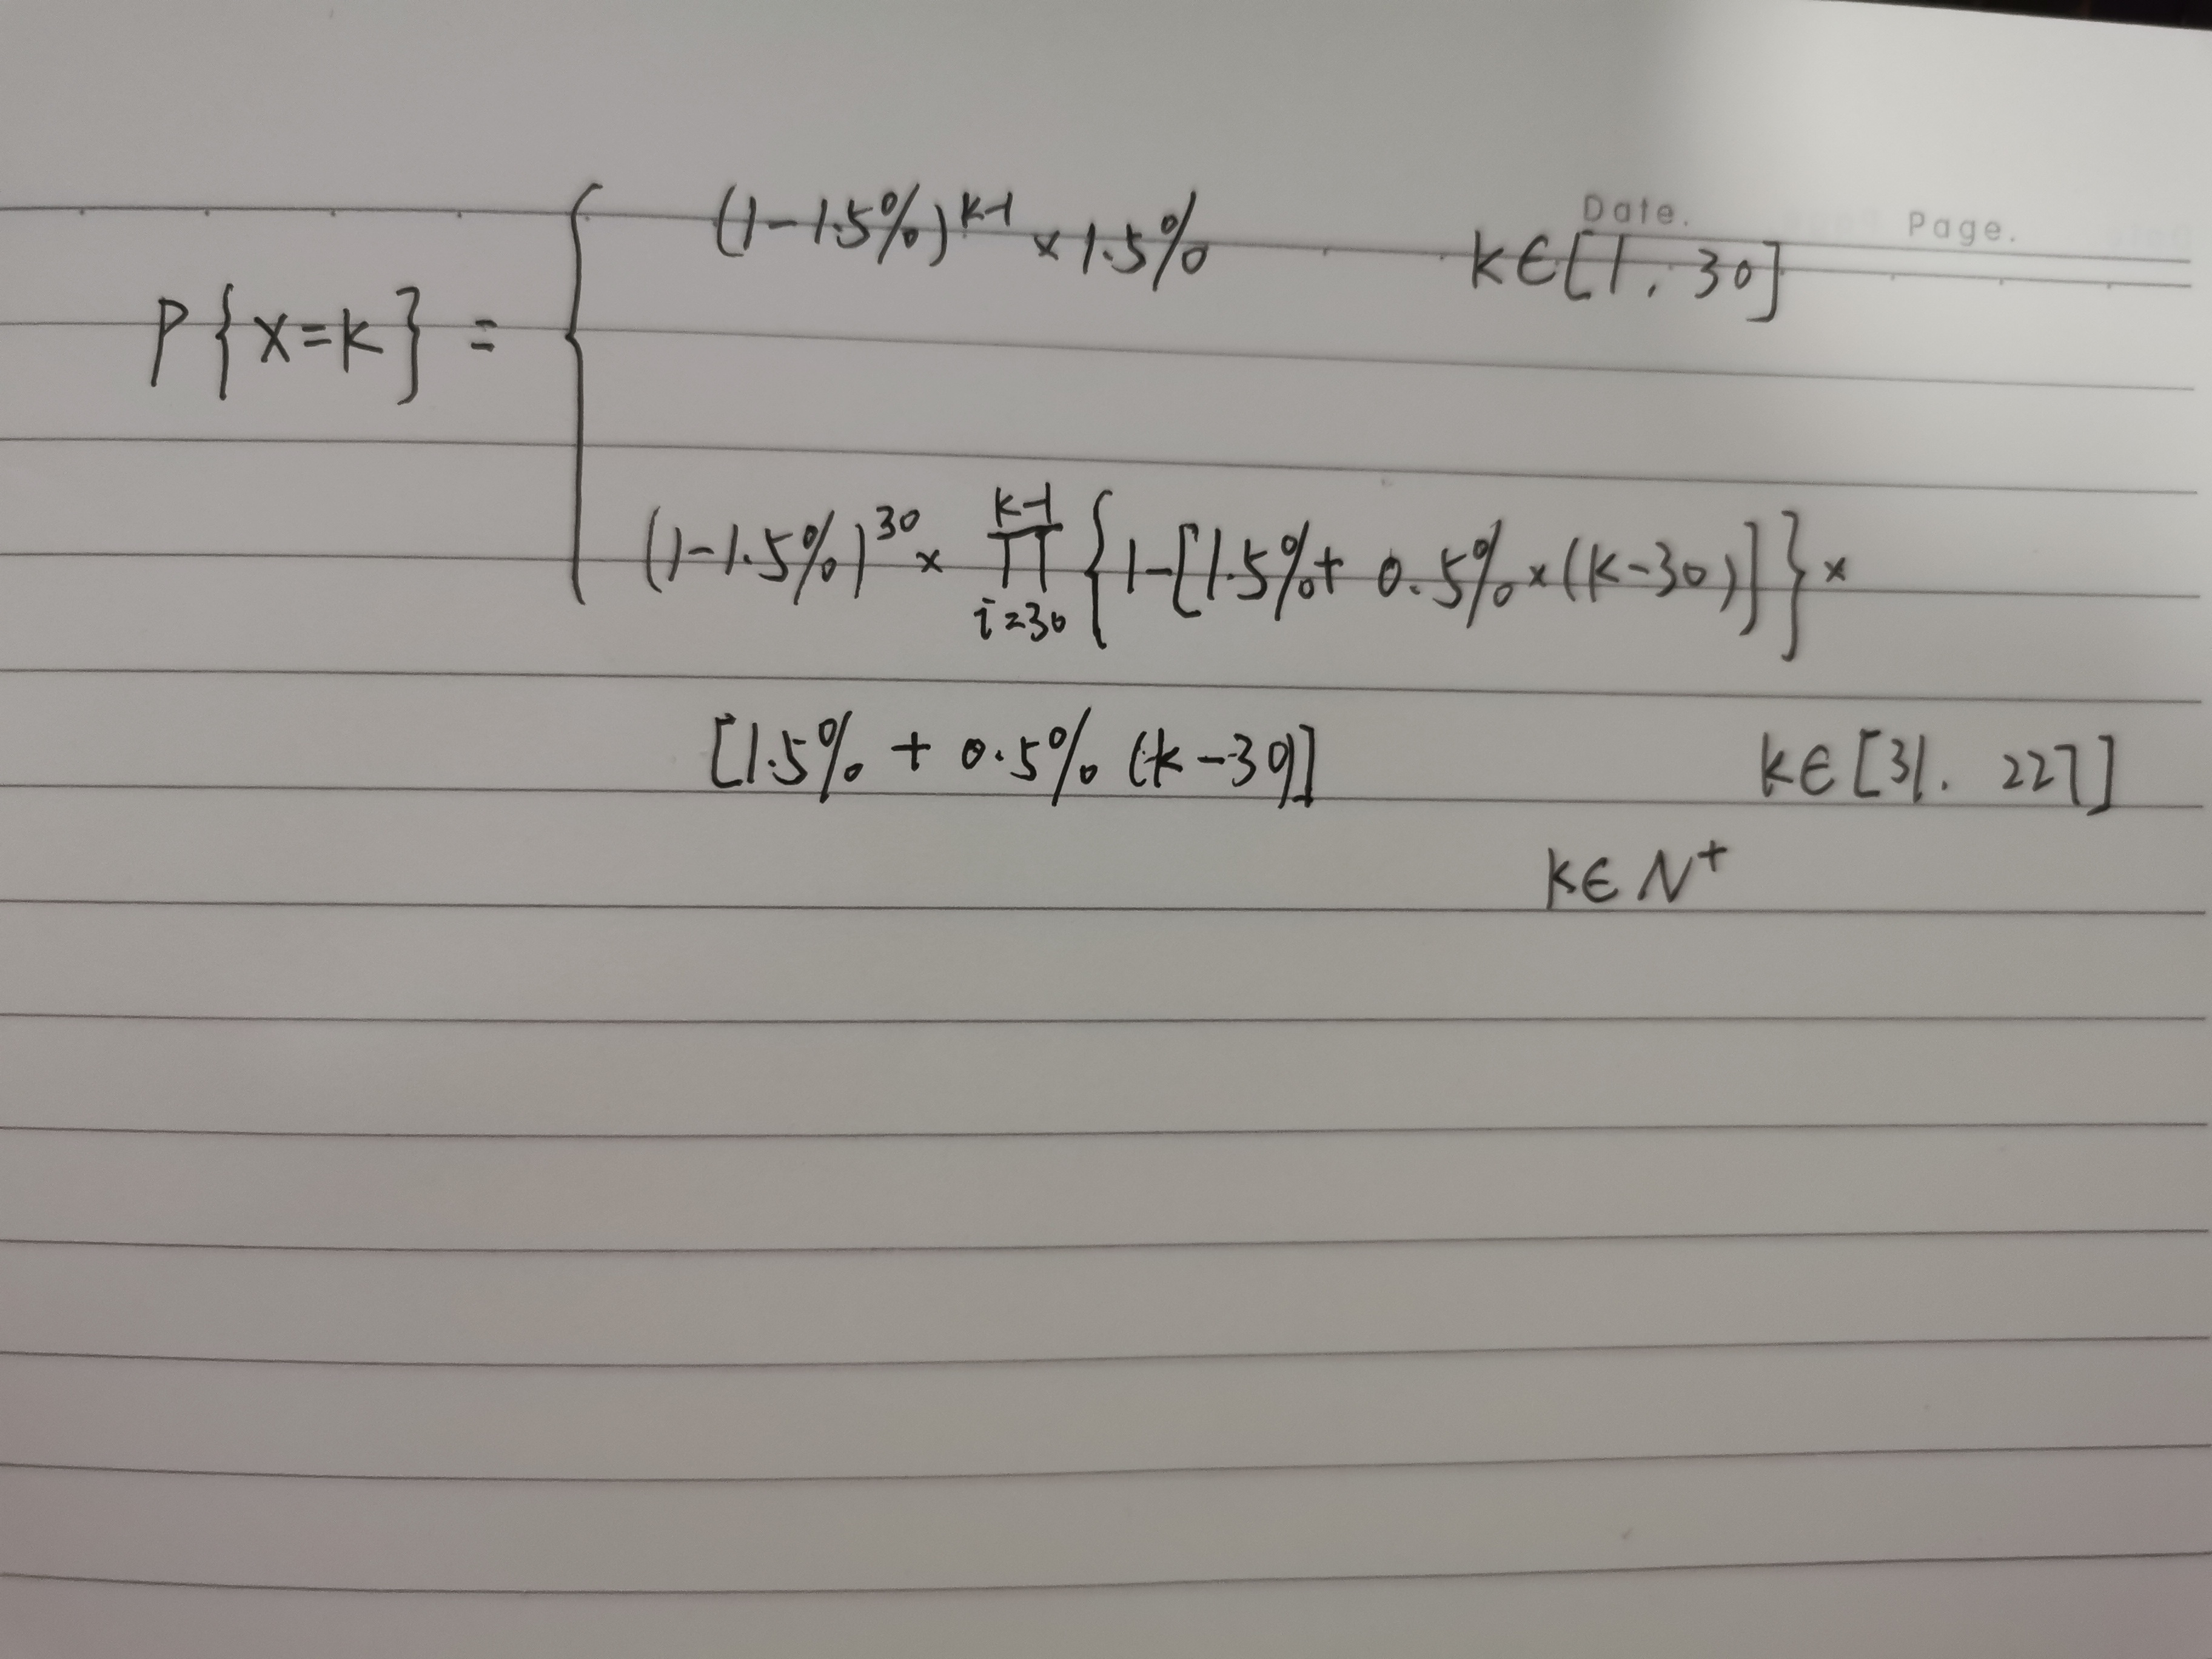 Date. Page.
P{X=k} = { (1-1.5%)^{k-1} × 1.5% k∈[1, 30]
(1-1.5%)^{30} × ∏_{i=30}^{k-1} {1-[1.5%+ 0.5%×(k-30)]} ×
[1.5% + 0.5% (k-30)] k∈[31. 227]
k∈N^+